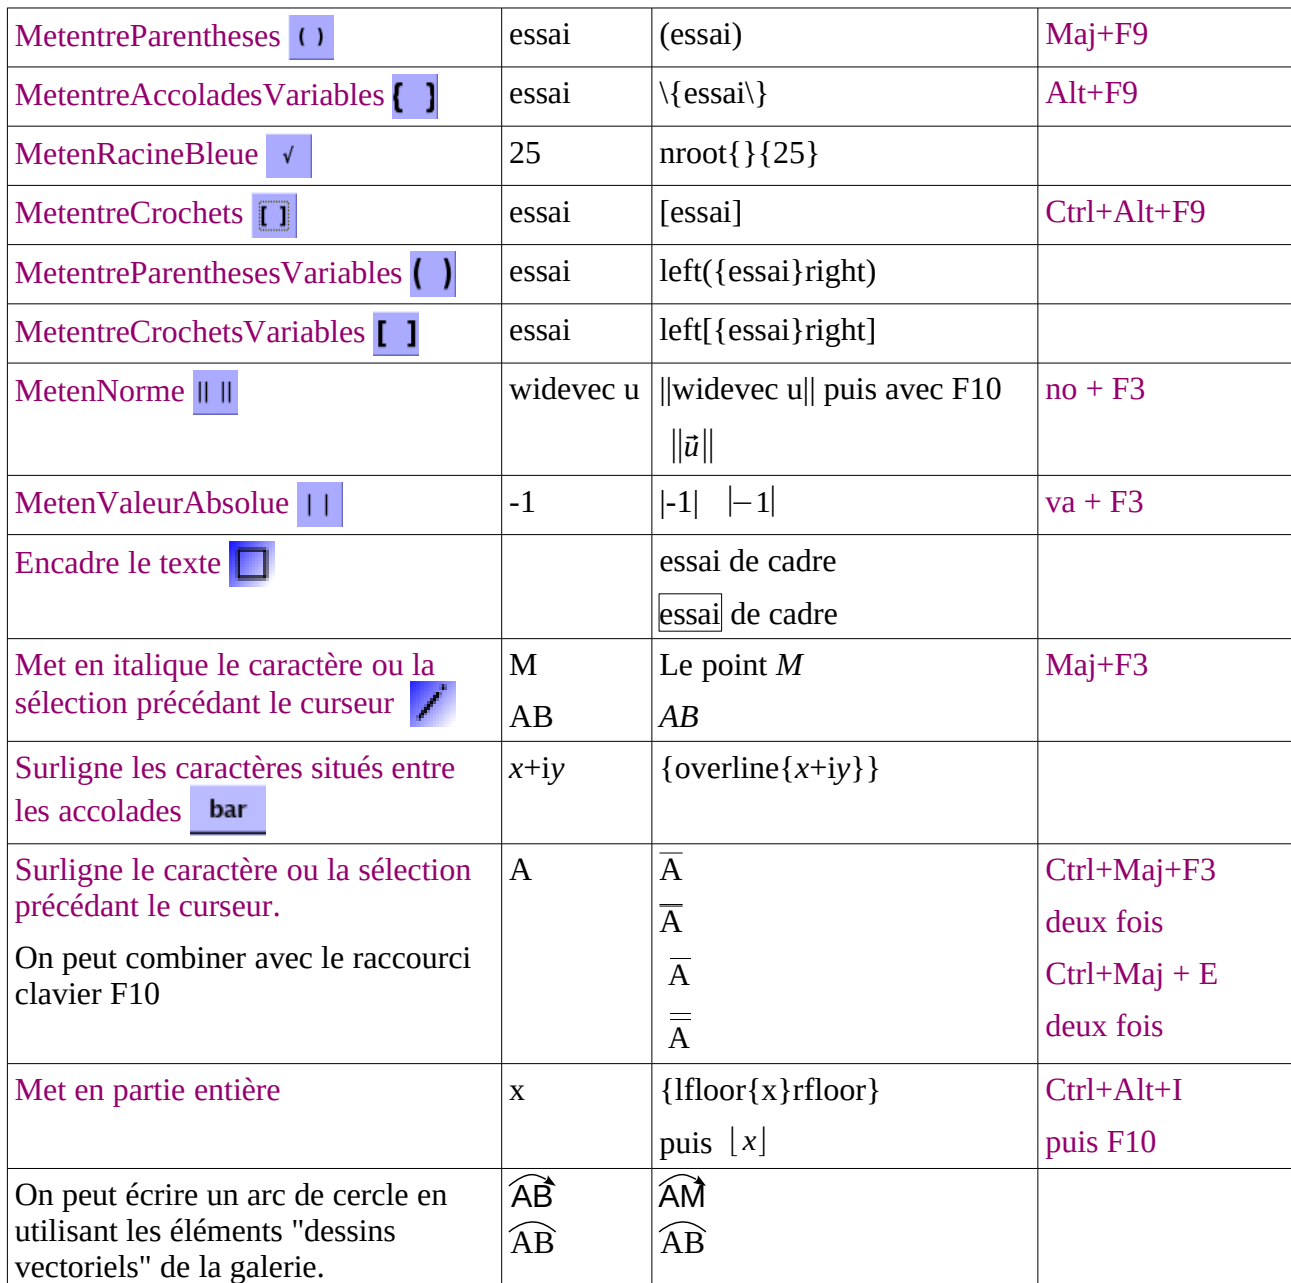 MetentreParentheses ( ) essai (essai) Maj+F9
MetentreAccoladesVariables { } essai \{essai\} Alt+F9
MetenRacineBleue √ 25 nroot{}{25}
MetentreCrochets [ ] essai [essai] Ctrl+Alt+F9
MetentreParenthesesVariables ( ) essai left({essai}right)
MetentreCrochetsVariables [ ] essai left[{essai}right]
MetenNorme || || widevec u ||widevec u|| puis avec F10 no + F3
‖u⃗‖
MetenValeurAbsolue | | -1 |-1| |−1| va + F3
Encadre le texte essai de cadre
essai de cadre
Met en italique le caractère ou la M Le point M Maj+F3
sélection précédant le curseur
AB AB
Surligne les caractères situés entre x+iy {overline{x+iy}}
les accolades bar
Surligne le caractère ou la sélection A A̅ Ctrl+Maj+F3
précédant le curseur.
A̿ deux fois
On peut combiner avec le raccourci
A̅ Ctrl+Maj + E
clavier F10
A̿ deux fois
Met en partie entière x {lfloor{x}rfloor} Ctrl+Alt+I
puis ⌊x⌋ puis F10
On peut écrire un arc de cercle en AB AM
utilisant les éléments "dessins
AB AB
vectoriels" de la galerie.